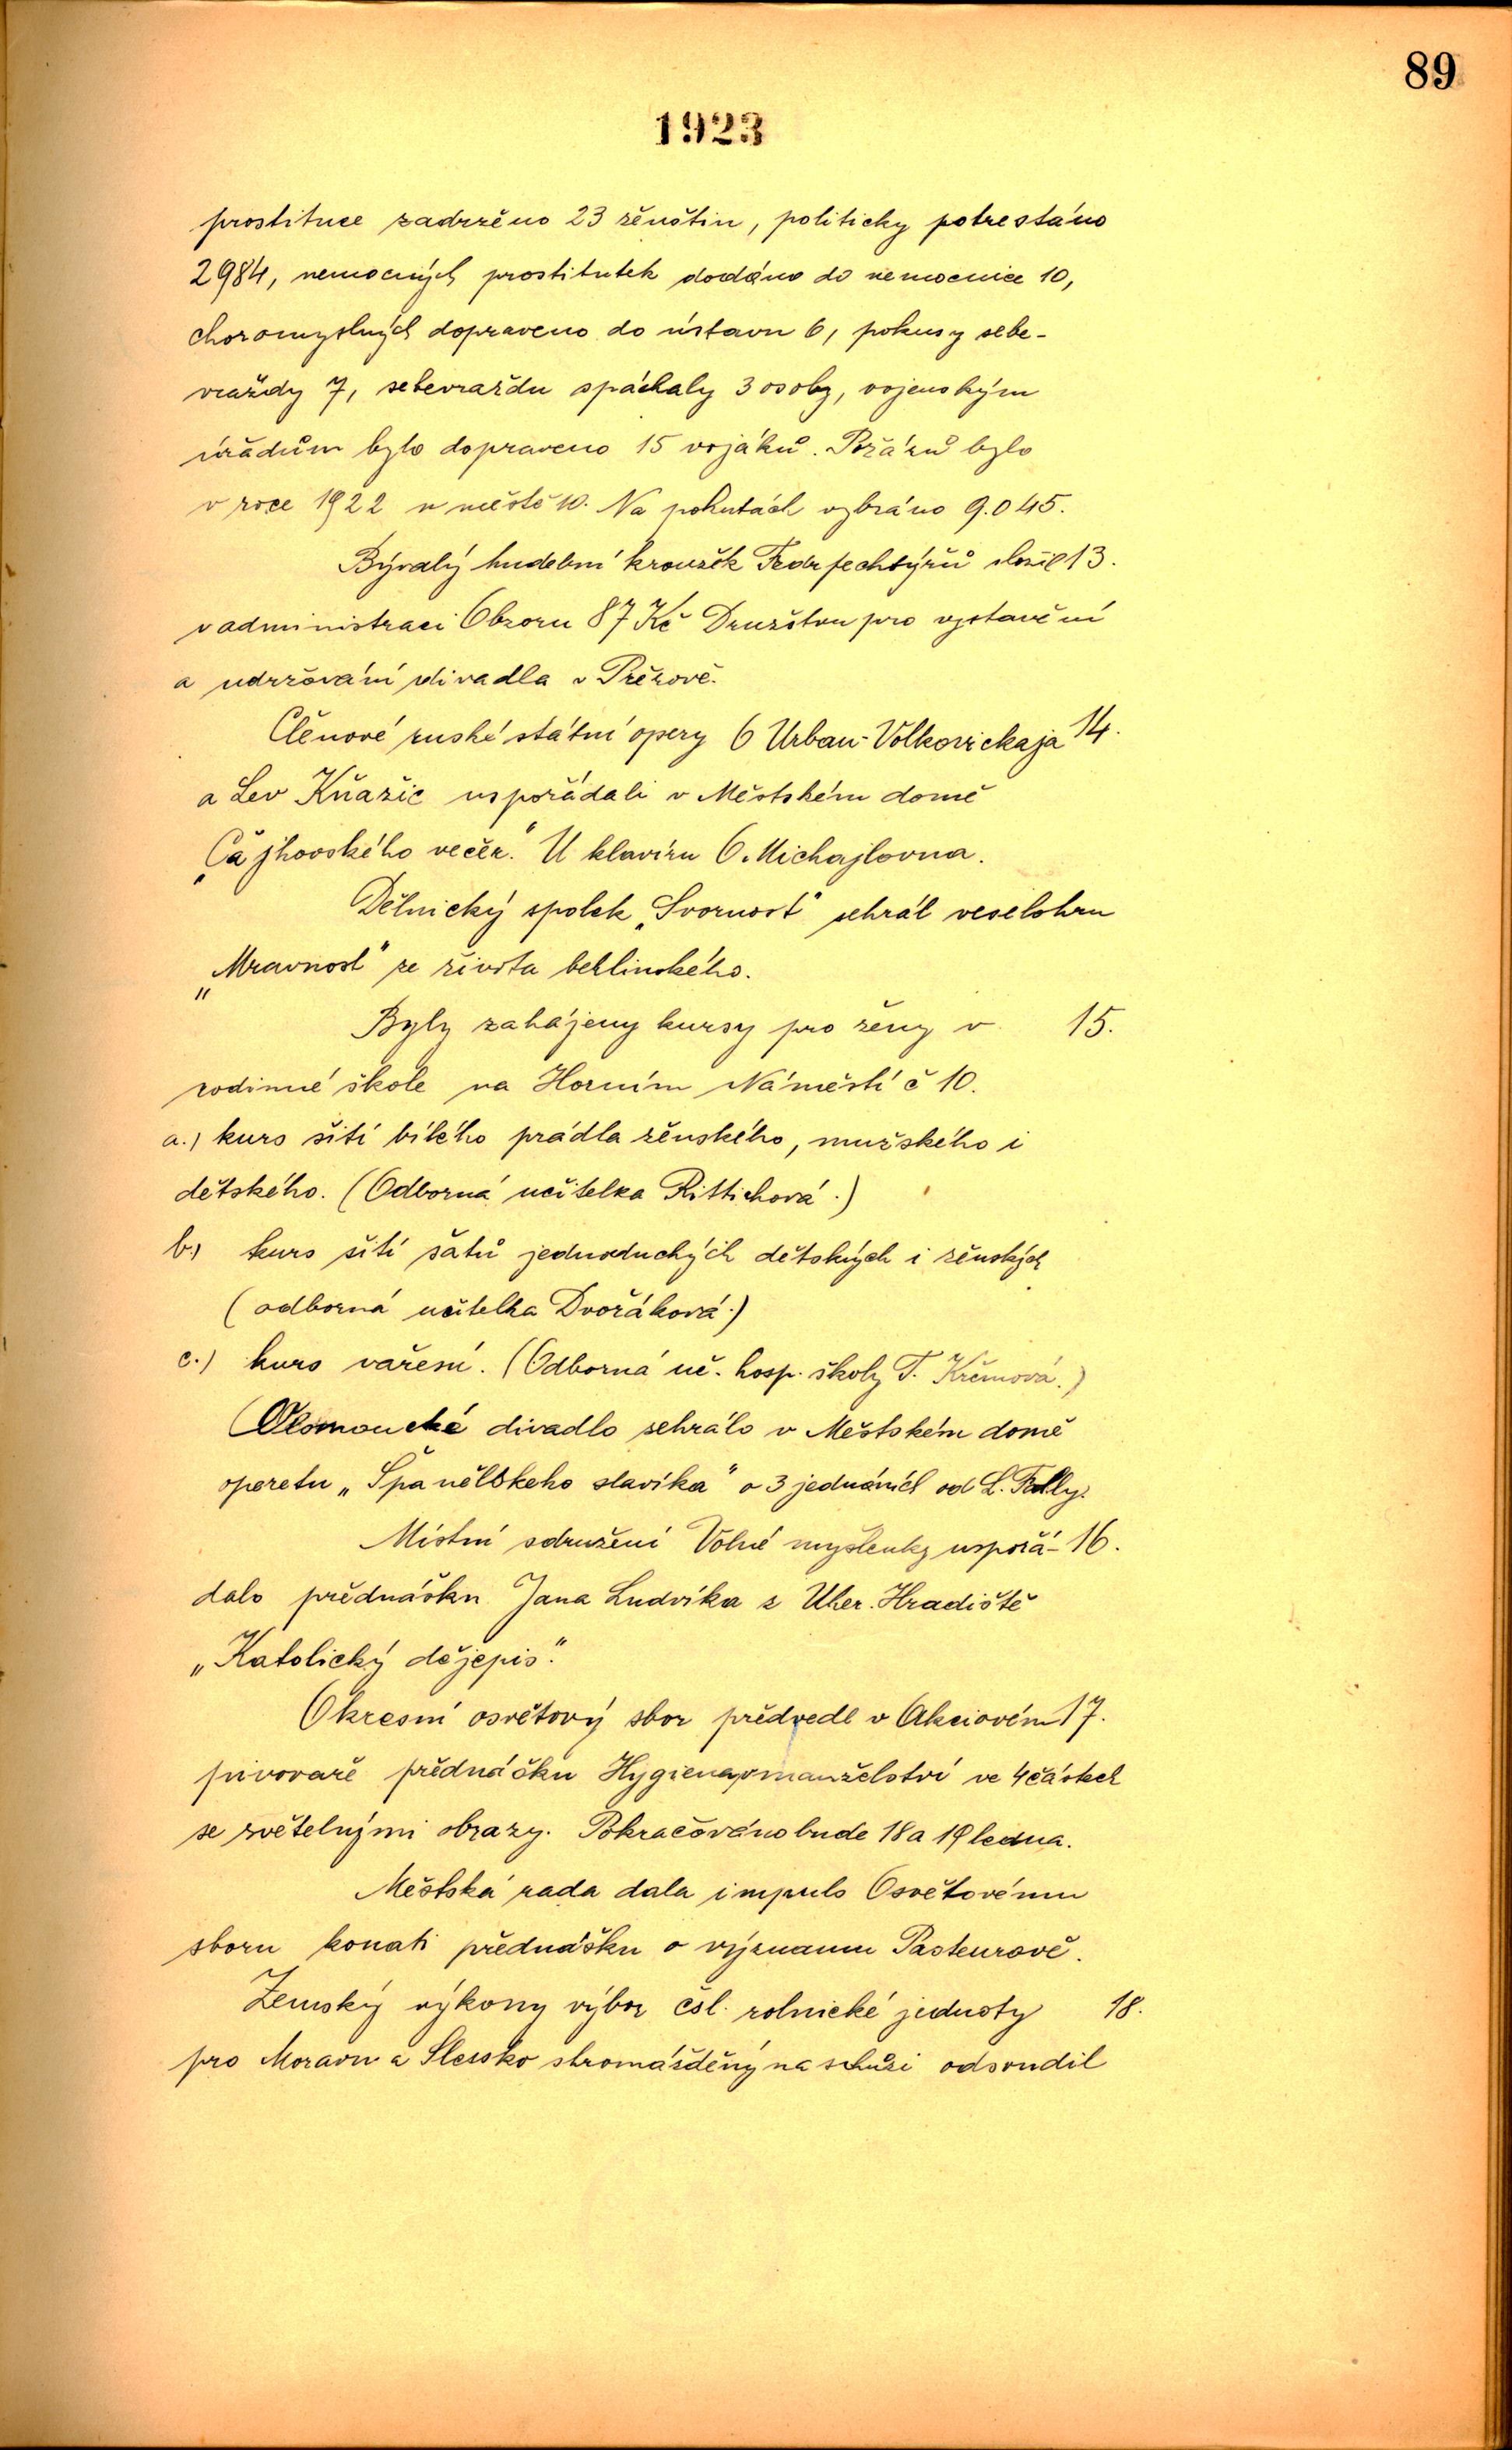 89
1923
prostituce zadrženo 23 ženštin, politicky potrestáno
2984, nemocných prostitutek dodáno do nemocnice 10,
choromyslných dopraveno do ústavu 6, pokusy sebe-
vraždy 7, sebevraždu spáchaly 3 osoby, vojenským
úřadům bylo dopraveno 15 vojáků. Požárů bylo
v roce 1922 v městě 10. Na pokutách vybráno 9.045.
Bývalý hudební kroužek složil 13.
v administraci Obzoru 87 Kč Družstvu pro vystavění
a udržování divadla v Přerově.
Členové ruské státní opery O Urban-Volkovickaja 14.
a Lev Kňažic uspořádali v Městském domě
„Čajkovského večer." U klavíru O. Michajlovna.
Dělnický spolek „Svornost" sehrál veselohru
„Mravnost" ze života berlínského.
Byly zahájeny kursy pro ženy v 15.
rodinné škole na Horním Náměstí č 10.
a.) kurs šití bílého prádla ženského, mužského i
dětského. (Odborná učitelka Rittichová.)
b.) kurs šití šatů jednoduchých dětských i ženských
(odborná učitelka Dvořáková.)
c.) kurs vaření. (Odborná uč. hosp. školy T. Krčmová.)
Olomoucké divadlo sehrálo v Městském domě
operetu „Španělskeho slavíka" o 3 jednáních od L. Fally.
Místní sdružení Volné myšlenky uspořá- 16.
dalo přednášku Jana Ludvíka z Uher. Hradiště
„Katolický dějepis."
Okresní osvětový sbor předvedl v Akciovém 17.
pivovaře přednášku Hygiena v manželství ve 4 částech
se světelnými obrazy. Pokračováno bude 18 a 19 ledna.
Městská rada dala impuls Osvětovému
sboru konati přednášku o významu Pasteurově.
Zemský výkony výbor čsl. rolnické jednoty 18.
pro Moravu a Slezsko shromážděný na schůzi odsoudil